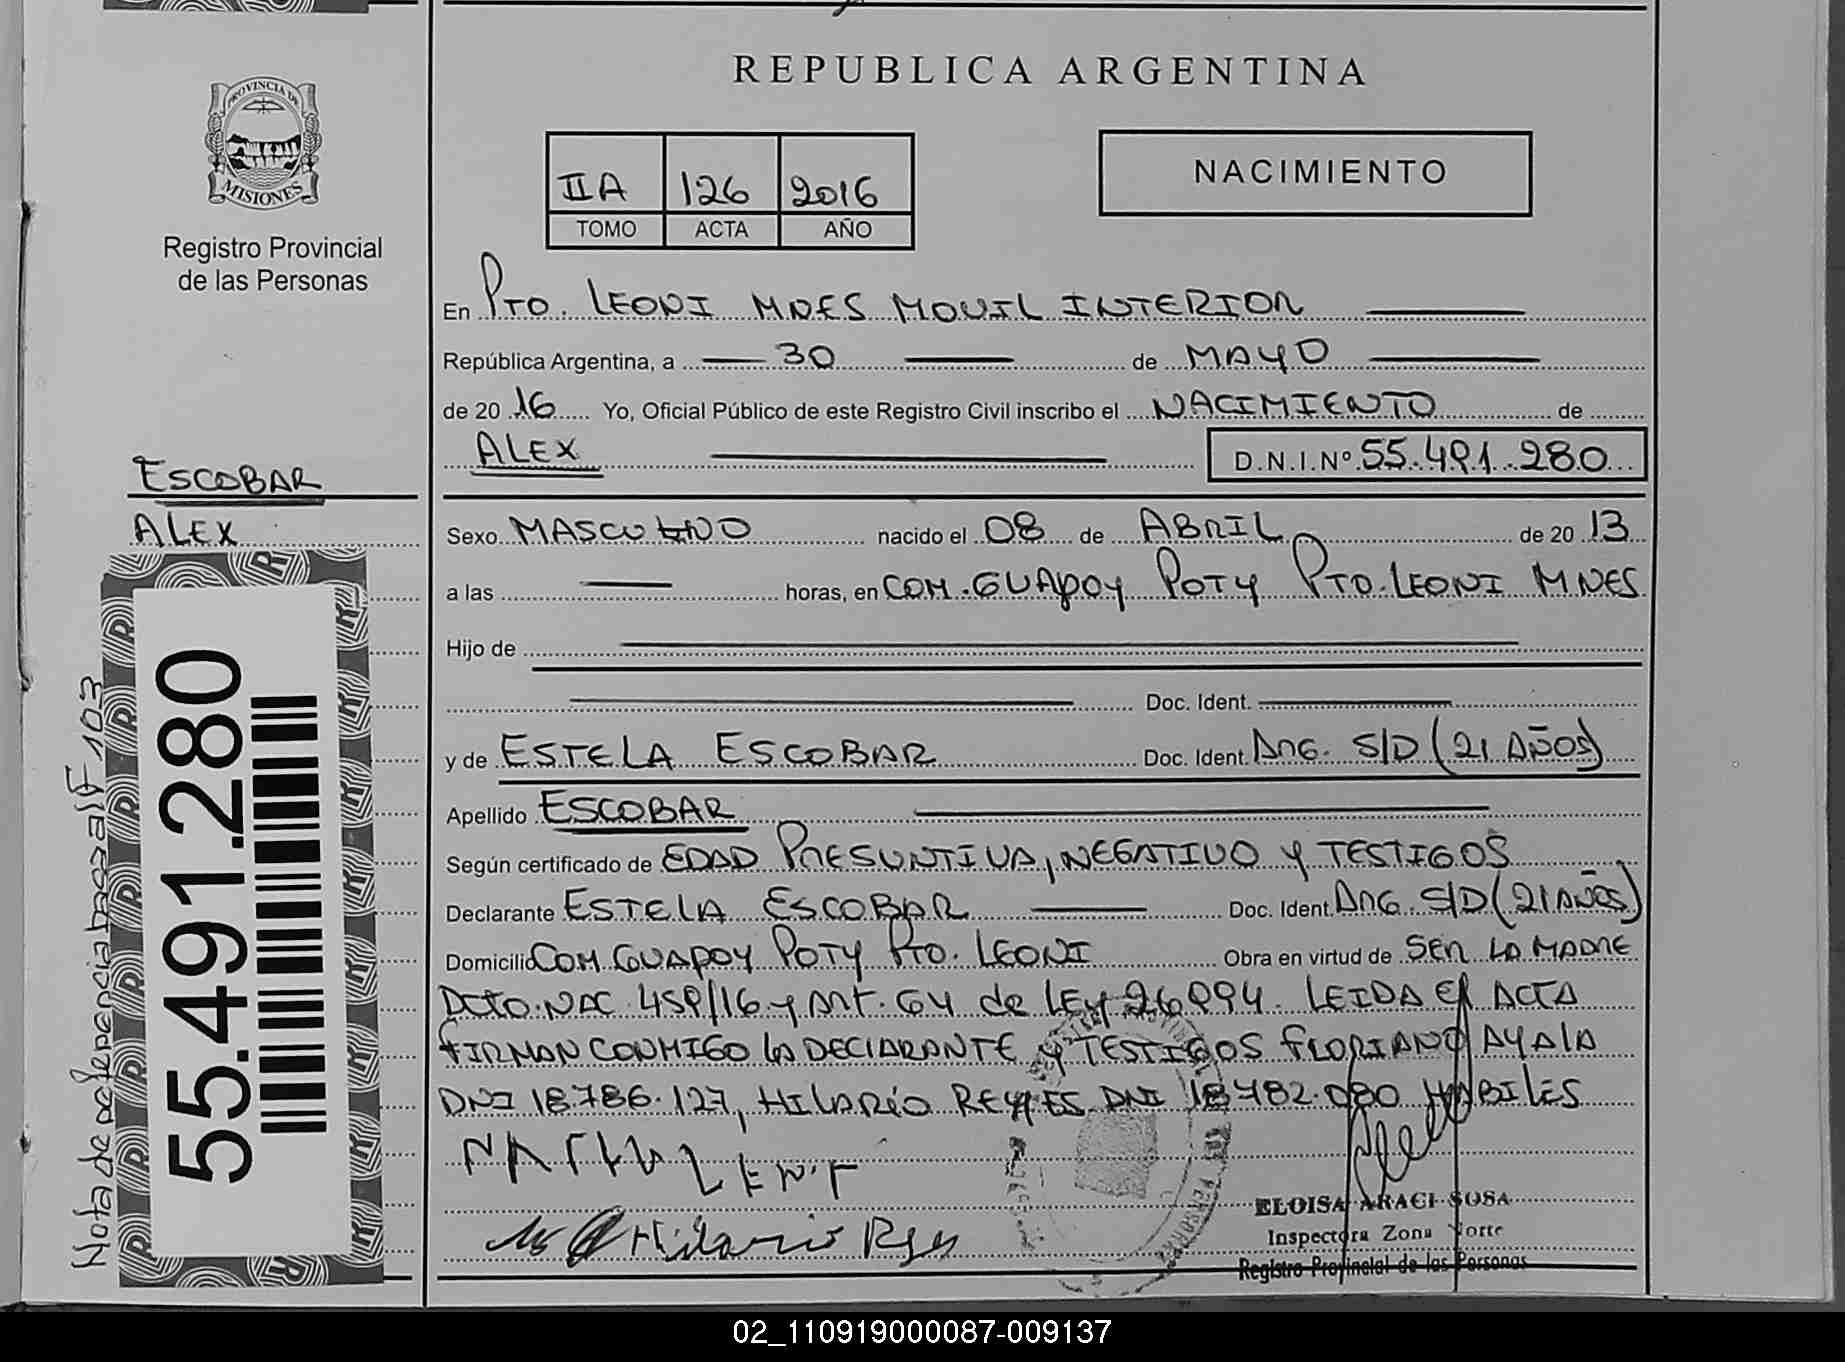 REPUBLICA ARGENTINA
PROVINCIA DE
MISIONES
Registro Provincial
de las Personas
IIA 126 2016
TOMO ACTA AÑO
NACIMIENTO
En PTO. LEONI MNES MOVIL INTERIOR
República Argentina, a 30 de MAYO
de 20 16 Yo, Oficial Público de este Registro Civil inscribo el NACIMIENTO de
ALEX D.N.I.Nº 55.491.280
ESCOBAR
ALEX
Sexo MASCULINO nacido el 08 de ABRIL de 20 13
a las horas, en COM. GUAPOY POTY PTO. LEONI MNES
Hijo de
Doc. Ident.
y de ESTELA ESCOBAR Doc. Ident. ARG. S/D (21 AÑOS)
Apellido ESCOBAR
Según certificado de EDAD PRESUNTIVA, NEGATIVO Y TESTIGOS
Declarante ESTELA ESCOBAR Doc. Ident. ARG. S/D (21 AÑOS)
Domicilio COM. GUAPOY POTY PTO. LEONI Obra en virtud de SER LA MADRE
DCTO. NAC 459/16 y Art. 64 de LEY 26994. LEIDA El ACTA
FIRMAN CONMIGO LA DECLARANTE y TESTIGOS FLORIANO AYALA
DNI 18.786.127, HILARIO REYES DNI 18.782.080 HABILES
Hilario Reyes
ELOISA ARACI SOSA
Inspectora Zona Norte
Registro Provincial de las Personas
55.491.280
Nota de referencia al F 103
02_110919000087-009137